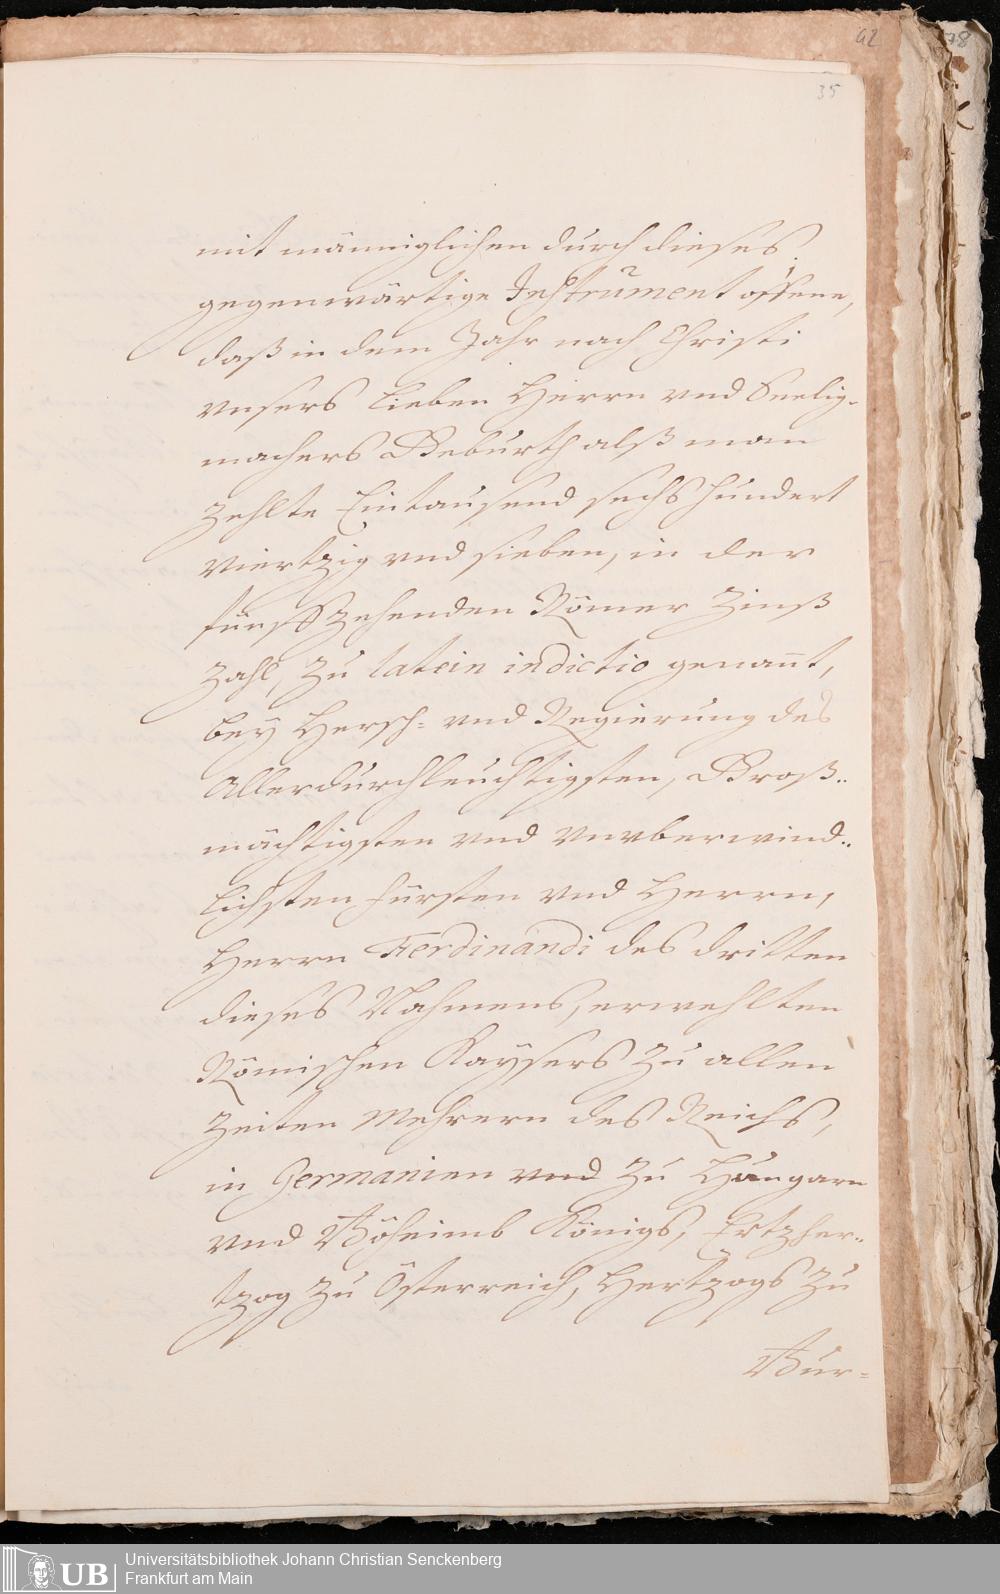 42
78
35
mit männiglichen durch dieses
gegenwärtige Instrument offene,
daß in dem Jahr nach Christi
vnsers lieben Herrn vnd Seelig-
machers Geburth alß man
zehlte Eintausend sechs hundert
viertzig vnd sieben, in der
fünffzehenden Römer Zinß
Zahl, zu latein indictio genannt,
bey Hersch= vnd Regierung des
Allerdurchleuchtigsten, Groß..
mächtigsten vnd vnvberwind..
lichsten Fürsten vnd Herrn,
Herrn Ferdinandi des dritten
dieses Nahmens, erwehlten
Römischen Kaysers zu allen
Zeiten Mehrern des Reichs,
in Germanien vnd zu Hungarn
vnd Böheimb Königs, Ertzher..
tzog zu Österreich, Hertzogs zu
Bur=
UB
Universitätsbibliothek Johann Christian Senckenberg
Frankfurt am Main